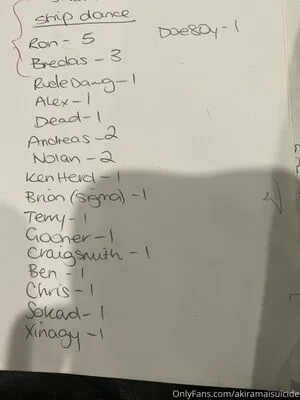 strip dance
Ron - 5
DOEBOY - 1
Bredas - 3
RudeDawg - 1
Alex - 1
Dead - 1
Andreas - 2
Nolan - 2
Ken Herd - 1
Brian (sigma) - 1
Terry - 1
Gooner - 1
Craigsmith - 1
Ben - 1
Chris - 1
Sokad - 1
Xinagy - 1
OnlyFans.com/akiramaisuicide